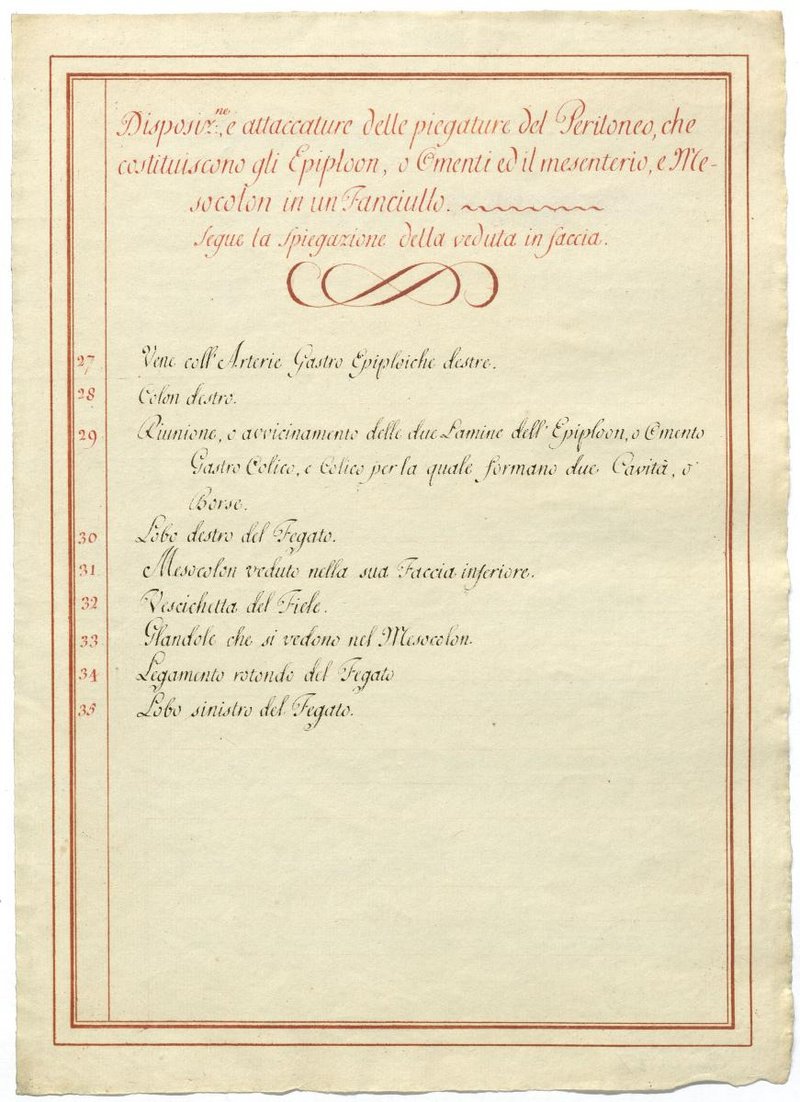 Disposiz.ne, e attaccature delle piegature del Peritoneo, che
costituiscono gli Epiploon, o Omenti ed il mesenterio, e Me-
socolon in un Fanciullo.
Segue la Spiegazione della veduta in faccia.
27 Vene coll' Arterie Gastro Epiploiche destre.
28 Colon destro.
29 Riunione, o avvicinamento delle due Lamine dell' Epiploon, o Omento
Gastro Colico, e Colico per la quale formano due Cavità, o
Borse.
30 Lobo destro del Fegato.
31 Mesocolon veduto nella sua Faccia inferiore.
32 Vescichetta del Fiele.
33 Glandole che si vedono nel Mesocolon.
34 Legamento rotondo del Fegato
35 Lobo sinistro del Fegato.